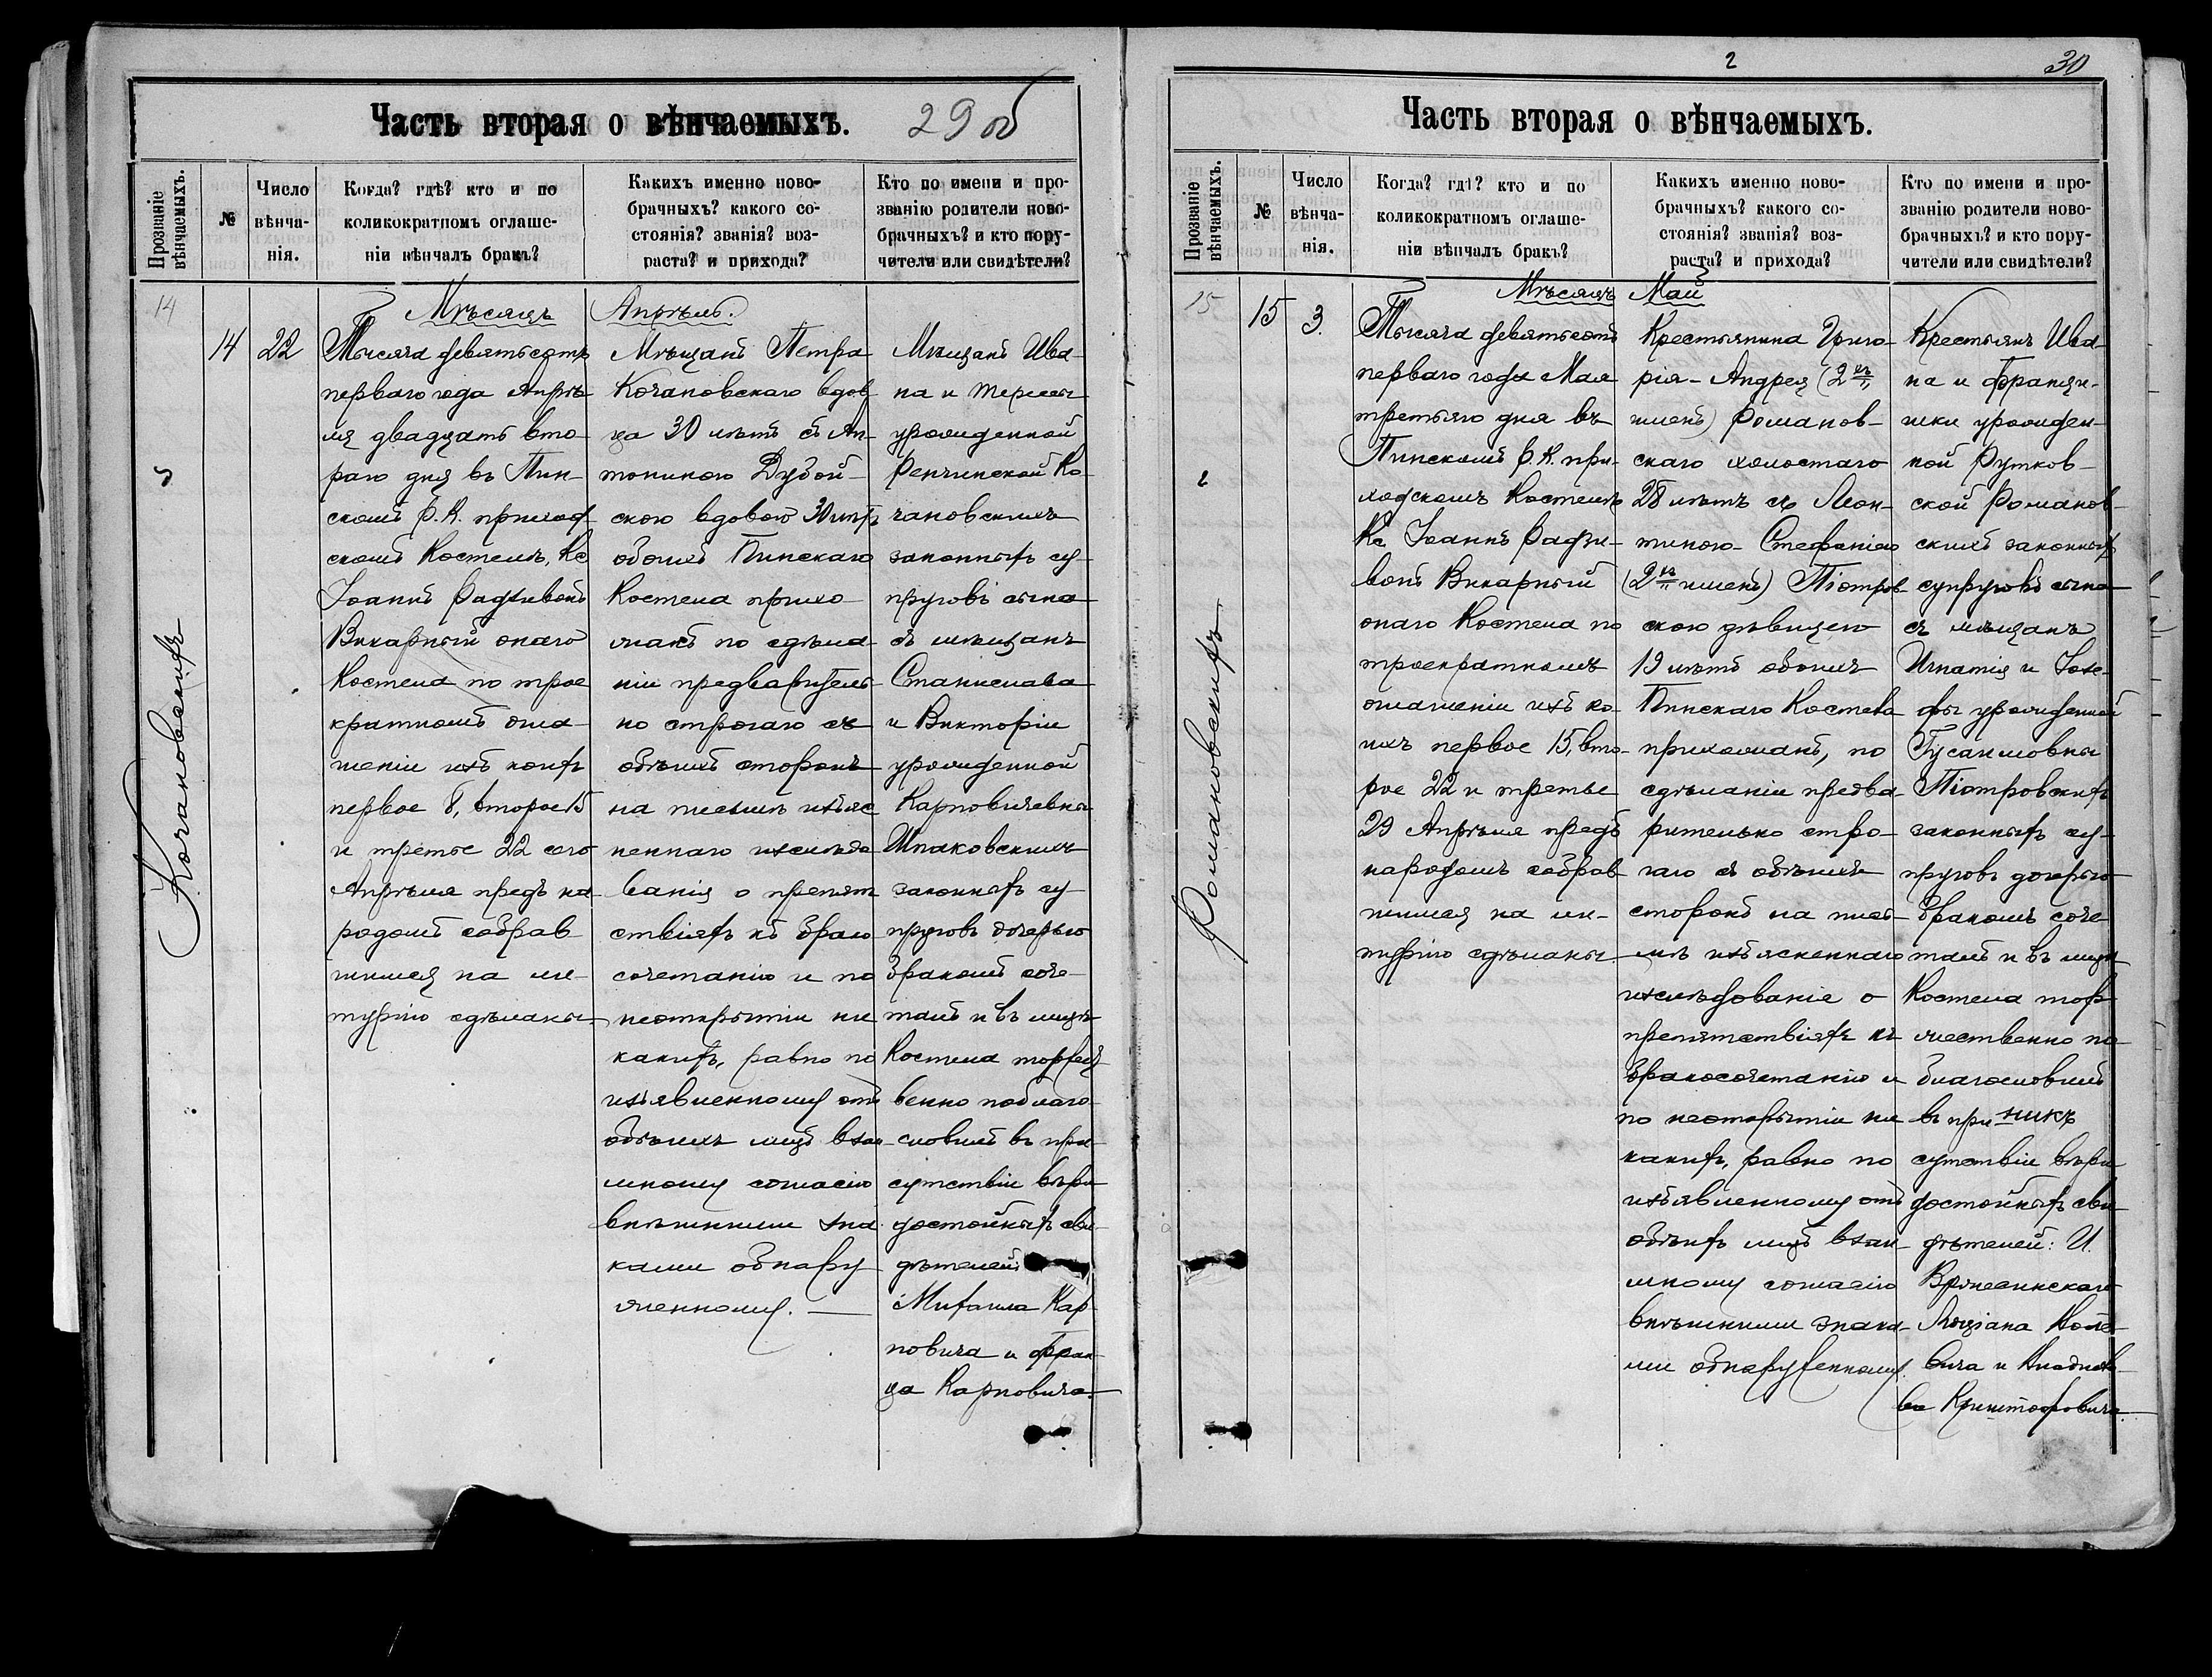 Часть вторая о вѣнчаемыхъ.
29 об
Прозваніе вѣнчаемыхъ.
№
Число вѣнча-
нія.
Когда? гдѣ? кто и по
коликократномъ оглаше-
ніи вѣнчалъ бракъ?
Какихъ именно ново-
брачныхъ? какого со-
стоянія? званія? воз-
раста? и прихода?
Кто по имени и про-
званію родители ново-
брачныхъ? и кто пору-
чители или свидѣтели?
14
Кочановскихъ
14
22
Мѣсяцъ Апрѣль.
Тысяча девятьсотъ
перваго года Апрѣ-
ля двадцать вто-
раго дня въ Пин-
скомъ Р.К. приход-
скомъ Костелѣ, Кс
Іоаннъ Радзивонъ
Викарный онаго
Костела по трое
кратномъ огла-
шеніи изъ коихъ
первое 8, второе 15
и третье 22 сего
Апрѣля предъ на-
родомъ собрав
шимся на ли-
тургію сдѣланы.
Мѣщанъ Петра
Кочановскаго вдов
ца 30 лѣтъ съ Ан-
тониною Дубой-
скою вдовою 30 лѣтъ
обоихъ Пинскаго
Костела прихо
жанъ по сдѣла-
ніи предваритель-
но строгаго съ
обѣихъ сторонъ
на письмѣ изъяс
неннаго изслѣдо
ванія о препят
ствіяхъ къ брако
сочетанію и по
неоткрытіи ни
какихъ, равно по
изъявленному отъ
обѣихъ лицъ взаи-
мному согласію
внѣшними зна
ками обнару
женному.
Мѣщанъ Ива-
на и Терессы
урожденной
Ренчинской Ко-
чановскихъ
законныхъ су-
пруговъ сына
съ мѣщанъ
Станислава
и Викторіи
урожденной
Карповичевны
Шпаковскихъ
законныхъ су
пруговъ дочерью
бракомъ соче-
талъ и въ лицѣ
Костела торжест
венно поблаго-
словилъ въ при-
сутствіи вѣро
достойныхъ сви-
дѣтелей:
Михаила Кар
повича и Фран-
ца Карповича.
2
30
Часть вторая о вѣнчаемыхъ.
Прозваніе вѣнчаемыхъ.
№
Число
вѣнча-
нія.
Когда? гдѣ? кто и по
коликократномъ оглаше-
ніи вѣнчалъ бракъ?
Какихъ именно ново-
брачныхъ? какого со-
стоянія? званія? воз-
раста? и прихода?
Кто по имени и про-
званію родители ново-
брачныхъ? и кто пору-
чители или свидѣтели?
15
Романовскихъ
15
3.
Мѣсяцъ Май
Тысяча девятьсотъ
перваго года Мая
третьяго дня въ
Пинскомъ Р.К. при-
ходскомъ Костелѣ
Кс Іоаннъ Радзи-
вонъ Викарный
онаго Костела по
троекратномъ
оглашеніи изъ ко-
ихъ первое 15, вто-
рое 22 и третье
29 Апрѣля предъ
народомъ собрав
шимся на ли-
тургію сдѣланы
Крестьянина Григо-
рія-Андрея (2хъ
именъ) Романов-
скаго холостаго
28 лѣтъ съ Леон-
тиною-Стефаніею
(2хъ именъ) Піотров-
скою дѣвицею
19 лѣтъ обоихъ
Пинскаго Костела
прихожанъ, по
сдѣланіи предва-
рительно стро-
гаго съ обѣихъ
сторонъ на пись-
мѣ изъясненнаго
изслѣдованіе о
препятствіяхъ къ
бракосочетанію и
по неоткрытіи ни
какихъ, равно по
изъявленному отъ
обѣихъ лицъ взаи-
мному согласію
внѣшними знака-
ми обнаруженному.
Крестьянъ Ива-
на и Франци-
шки урожден-
ной Рутков-
ской Романов-
скихъ законныхъ
супруговъ сына
съ мѣщанъ
Игнатія и Іозе-
фы урожденной
Піотровскихъ
законныхъ су-
пруговъ дочерью
бракомъ соче
талъ и въ лицѣ
Костела тор
жественно по
благословилъ
въ при
сутствіи вѣро
достойныхъ сви-
дѣтелей: И.